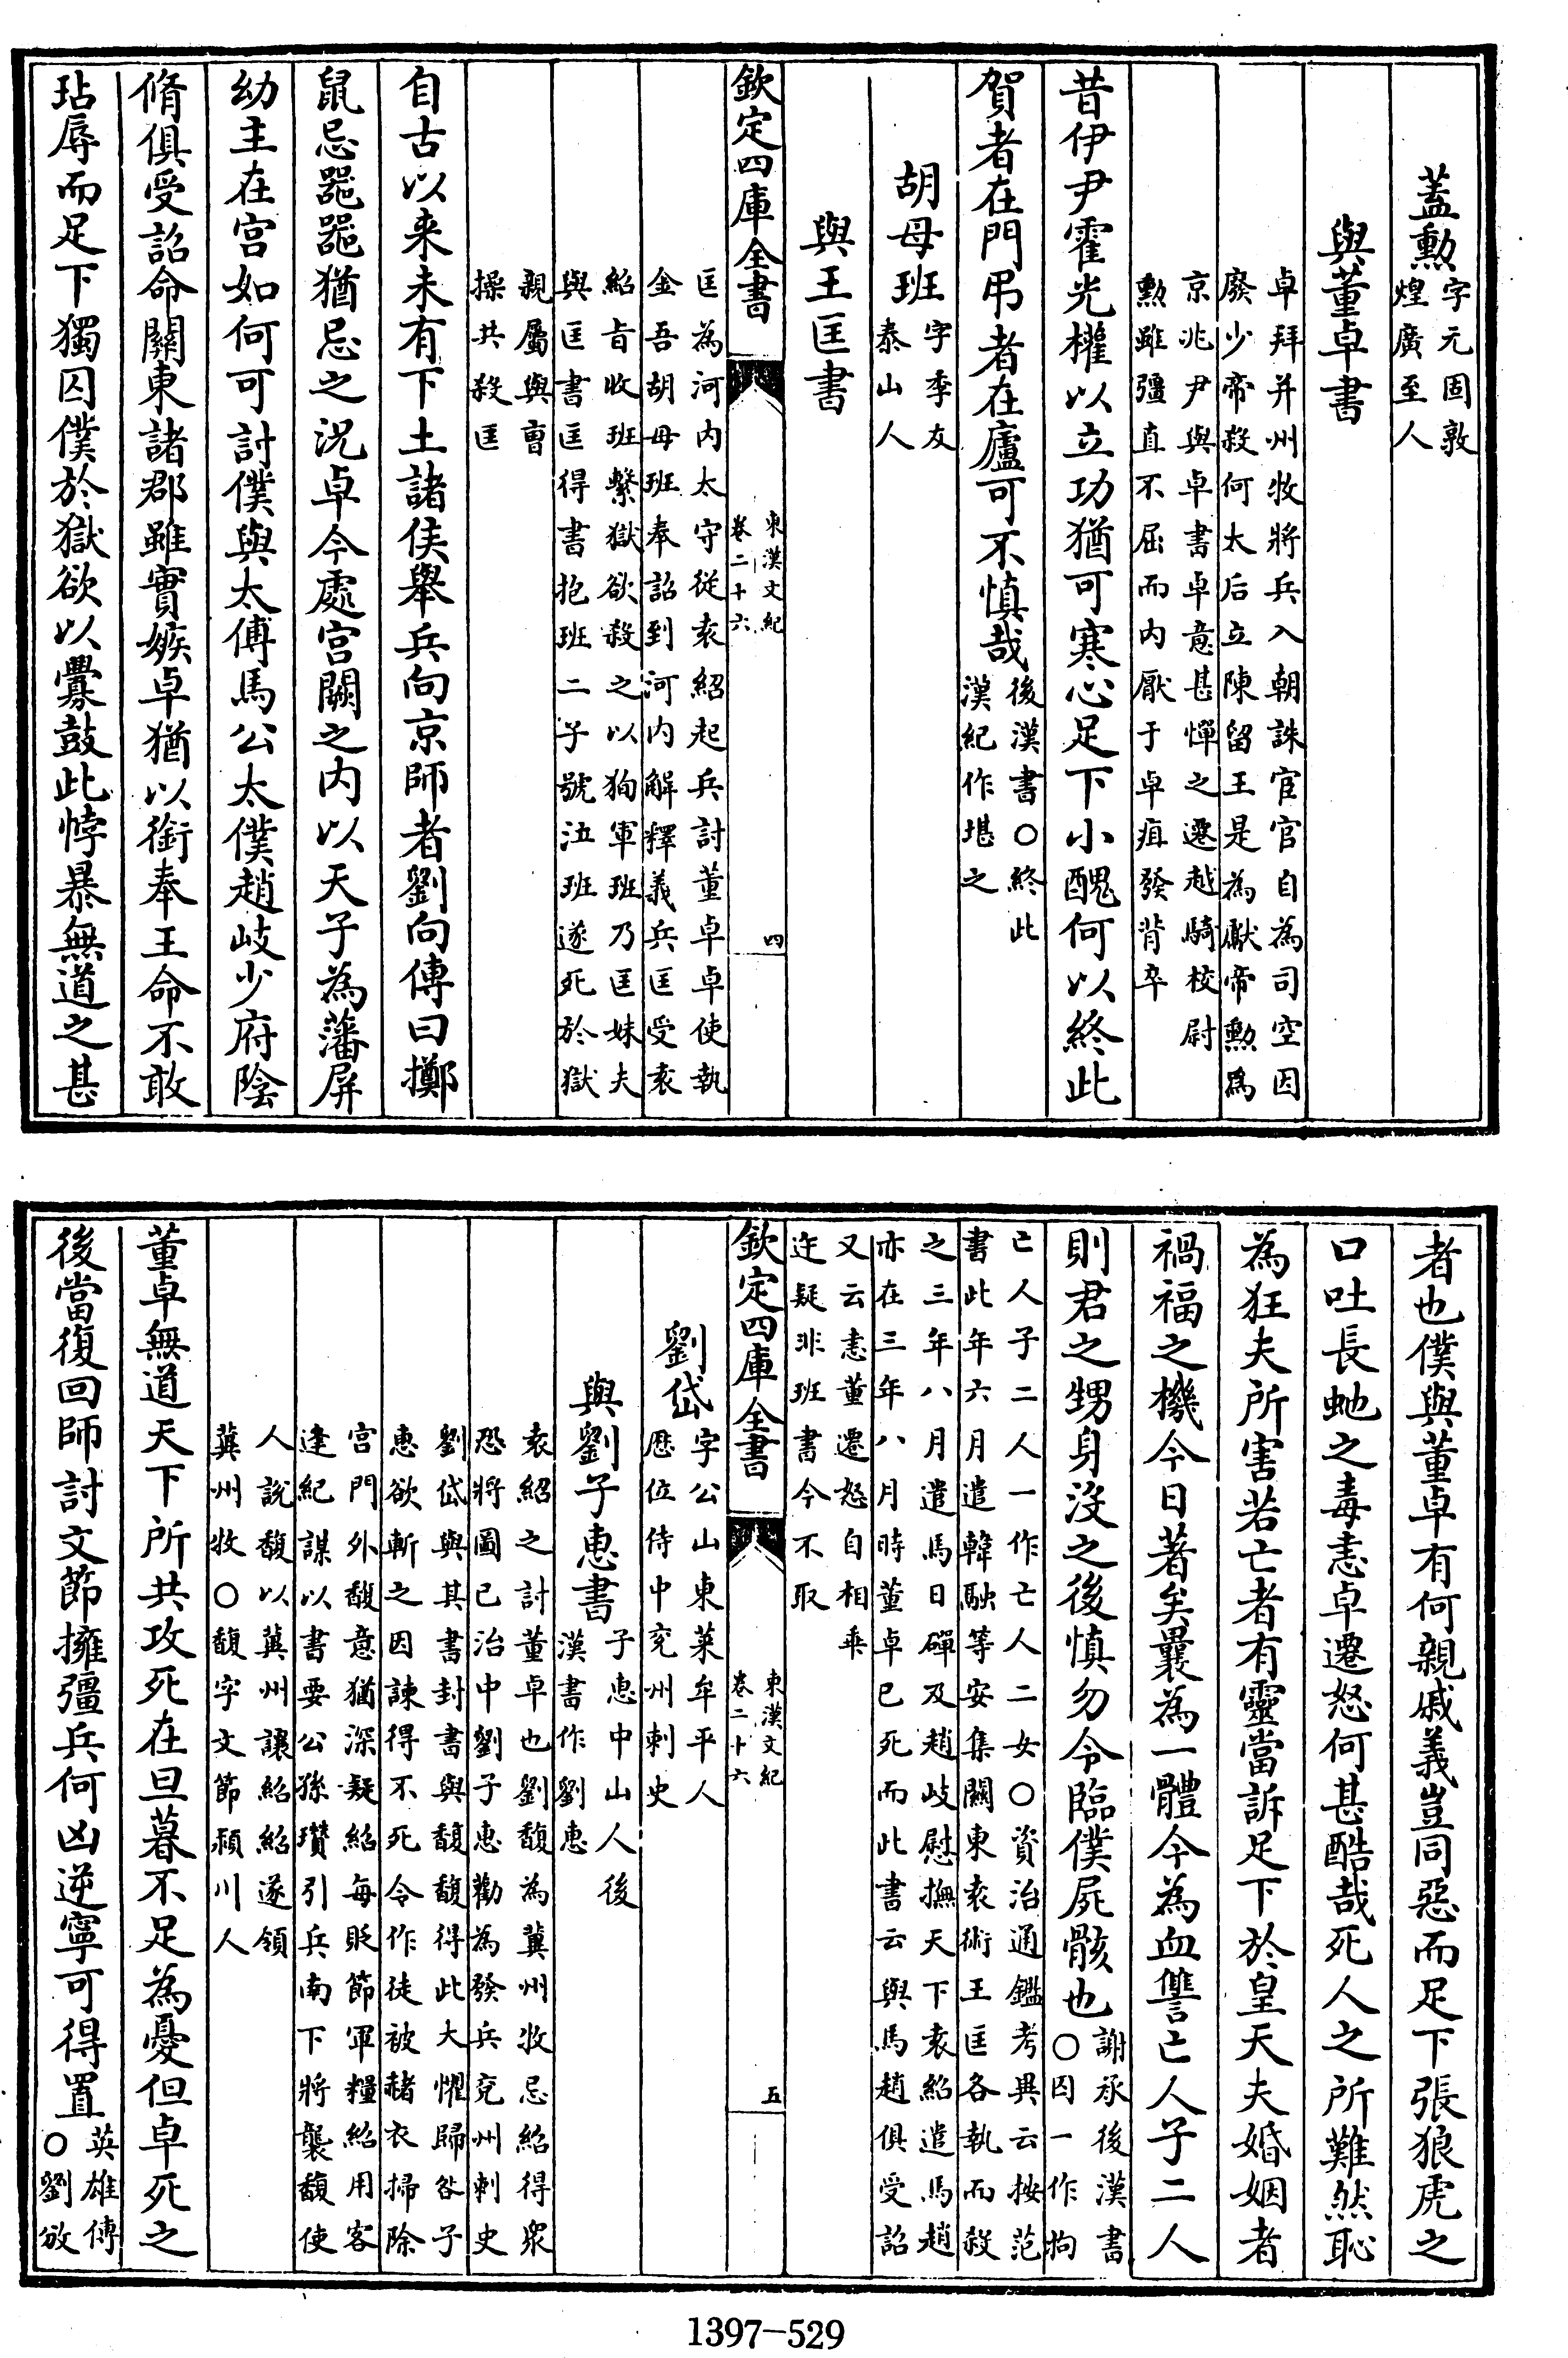 蓋勲字元固敦
煌廣至人
與董卓書
卓拜并州牧將兵入朝誅宦官自為司空因
廢少帝殺何太后立陳留王是為獻帝勲為
京兆尹與卓書卓意甚憚之遷越騎校尉
勲雖彊直不屈而內厭于卓疽發背卒
昔伊尹霍光權以立功猶可寒心足下小醜何以終此
賀者在門弔者在廬可不慎哉後漢書○終此
漢紀作堪之
胡母班字季友
泰山人
與王匡書
欽定四庫全書
東漢文紀
卷二十六
四
匡為河內太守從袁紹起兵討董卓卓使執
金吾胡母班奉詔到河內解釋義兵匡受袁
紹旨收班繫獄欲殺之以狥軍班乃匡妹夫
與匡書匡得書抱班二子號泣班遂死於獄
親屬與曹
操共殺匡
自古以来未有下土諸侯舉兵向京師者劉向傳曰擲
鼠忌器器猶忌之況卓今處宫闕之內以天子為藩屏
幼主在宫如何可討僕與太傅馬公太僕趙岐少府陰
脩俱受詔命關東諸郡雖實嫉卓猶以銜奉王命不敢
玷辱而足下獨囚僕於獄欲以釁鼓此悖暴無道之甚
者也僕與董卓有何親戚義豈同惡而足下張狼虎之
口吐長虵之毒恚卓遷怒何甚酷哉死人之所難然恥
為狂夫所害若亡者有靈當訴足下於皇天夫婚姻者
禍福之機今日著矣曩為一體今為血讐亡人子二人
則君之甥身沒之後慎勿令臨僕屍骸也謝承後漢書
○囚一作拘
亡人子二人一作亡人二女○資治通鑑考異云按范
書此年六月遣韓融等安集關東袁術王匡各執而殺
之三年八月遣馬日磾及趙岐慰撫天下袁紹遣馬趙
亦在三年八月時董卓已死而此書云與馬趙俱受詔
又云恚董遷怒自相乖
迕疑非班書今不取
欽定四庫全書
東漢文紀
卷二十六
五
劉岱字公山東萊牟平人
歴位侍中兖州刺史
與劉子惠書子惠中山人後
漢書作劉惠
袁紹之討董卓也劉馥為冀州牧忌紹得眾
恐將圖已治中劉子惠勸為發兵兖州刺史
劉岱與其書封書與馥馥得此大懼歸咎子
惠欲斬之因諫得不死令作徒被赭衣掃除
宫門外馥意猶深疑紹每貶節軍糧紹用客
逢紀謀以書要公孫瓚引兵南下將襲馥使
人説馥以冀州讓紹紹遂領
冀州牧○馥字文節潁川人
董卓無道天下所共攻死在旦暮不足為憂但卓死之
後當復回師討文節擁彊兵何凶逆寧可得置英雄傳
○劉攽
1397-529